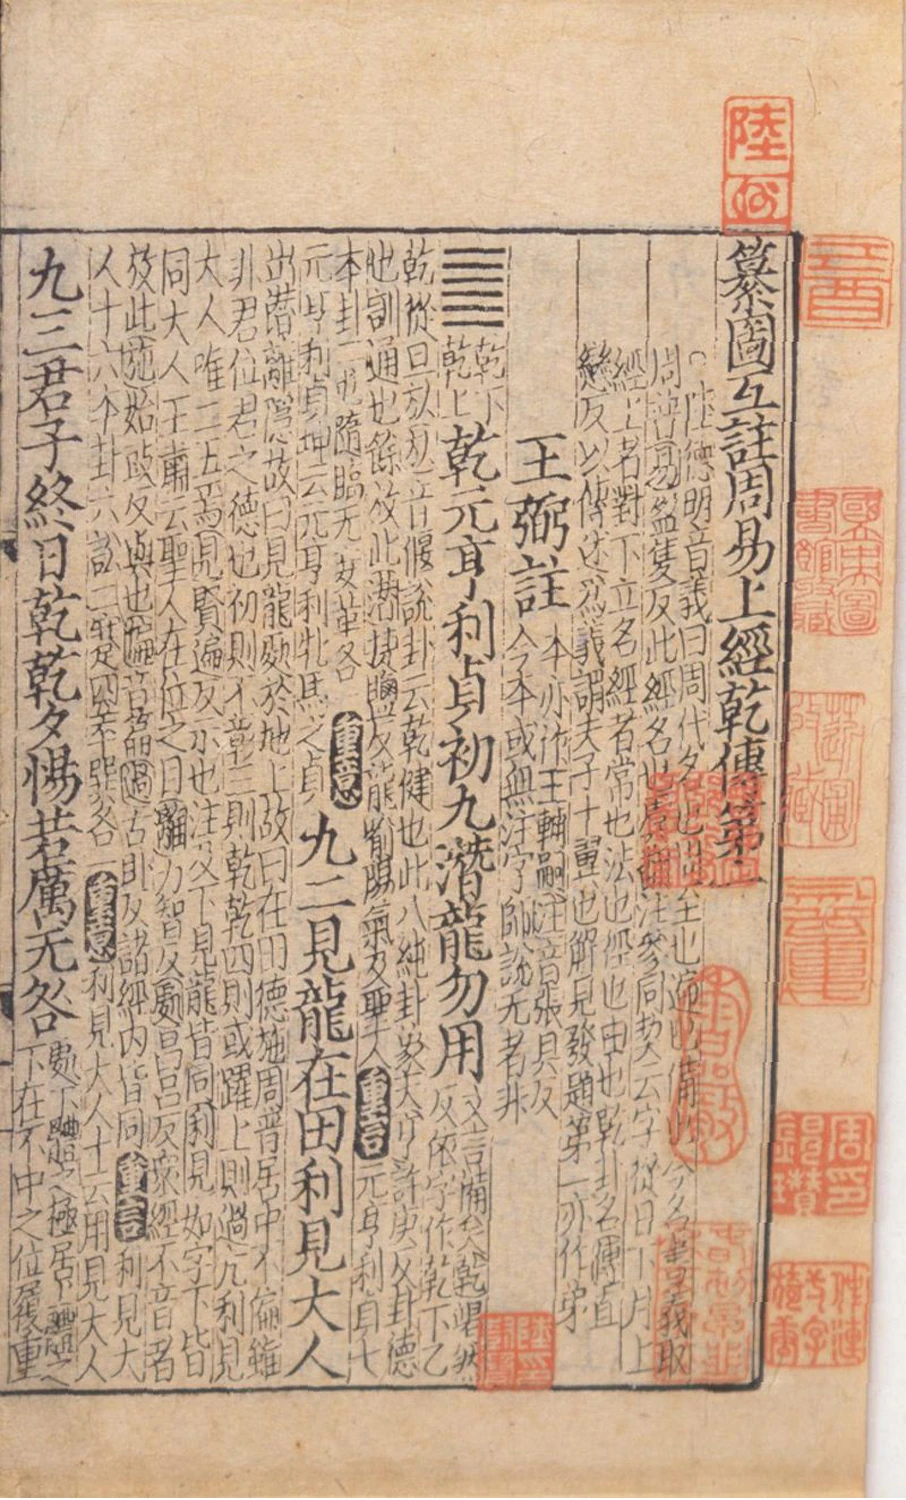 纂圖互註周易上經乾傳第一
陸德明音義曰周代名也周至也遍也備也今名書義取
周普易盈隻反此經名也虞翻注參同契云字從日下月上
經上者對下立名經者常也法也徑也由也乾卦名傳直
戀反以傳述爲義謂夫子十翼也解見發題第一亦作弟
王弼註
本亦作王輔嗣注音張具反
今本或無注字師說无者非
乾下
乾上
乾元亨利貞初九潛龍勿用
文言備矣乾竭然
反依字作乾下乙
乾從旦㫃㫃音偃說卦云乾健也此八純卦象天亨許庚反卦德
也訓通也餘放此潛捷鹽反龍喻陽氣及聖人
重言
元亨利貞七
本卦二屯隨臨无妄革各一
重意
元亨利貞坤云元亨利牝馬之貞
九二見龍在田利見大人
出潛離隱故曰見龍處於地上故曰在田德施周普居中不偏雖
非君位君之德也初則不彰三則乾乾四則或躍上則過亢利見
大人唯二五焉見賢遍反示也注及下見龍皆同利見如字下皆
同大人王肅云聖人在位之目離力智反處昌呂反衆經不音者
放此施始豉反與也
過古臥反諸經內皆同
重言
利見大
人十六本卦六訟二蹇四萃巽各一
重意
利見大人升云用見大人
九三君子終日乾乾夕惕若厲无咎
處下體之極居上體之
下在不中之位履重